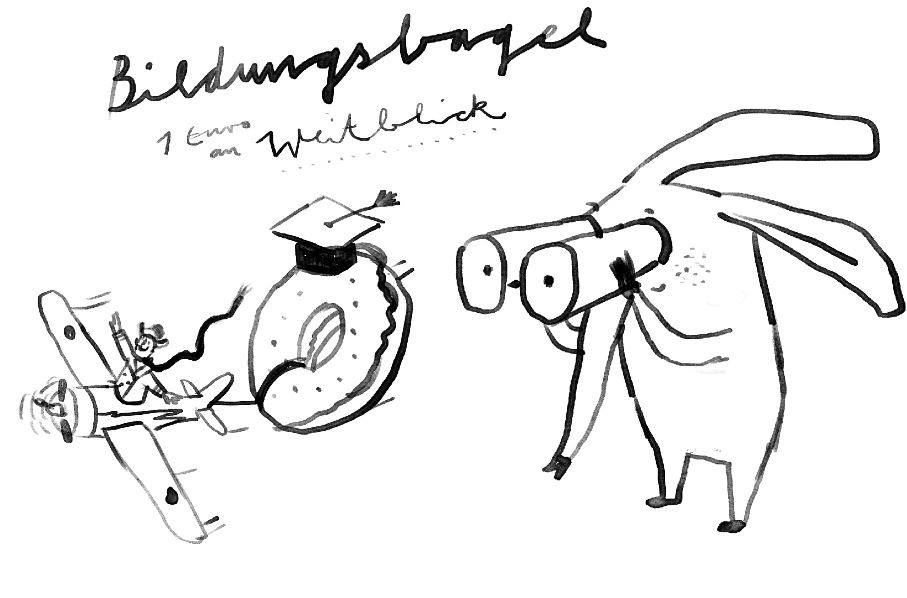 Bildungsbagel
1 Euro
an Weitblick